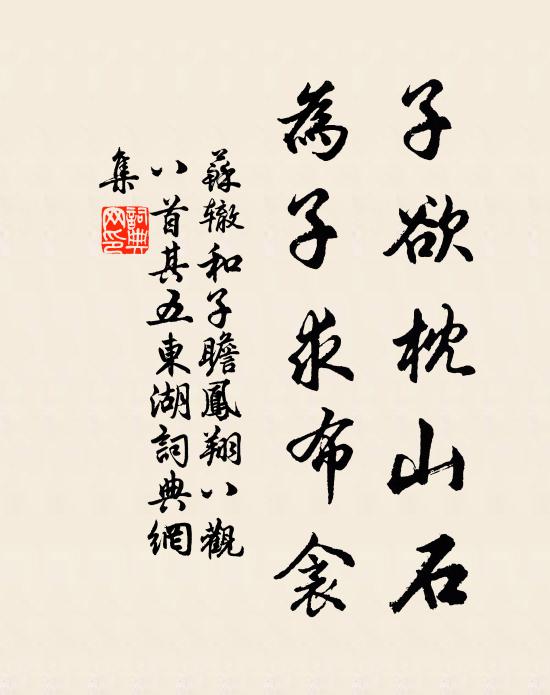 子欲枕山石
為子求布衾
蘇辙和子瞻鳳翔八觀
八首其五東湖詞典網
集
詞典网印